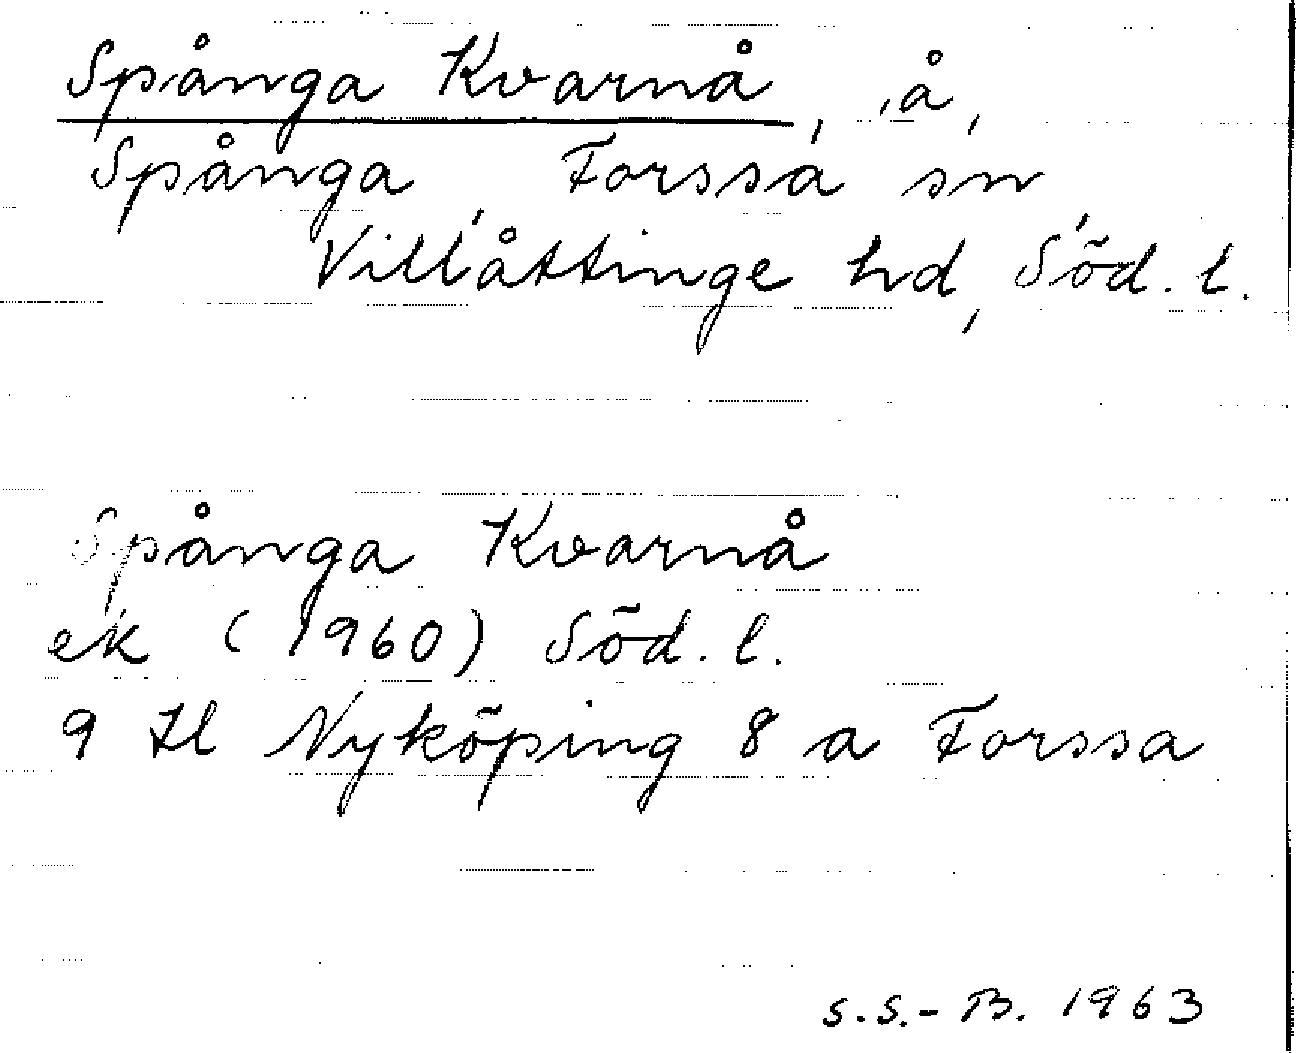 Spånga Kvarnå, å,
Spånga, Forssa sn,
Villåttinge hd, Söd. l.
Spånga Kvarnå
ek (1960) Söd. l.
9 H Nyköping 8 a Forssa
S.S.-B. 1963